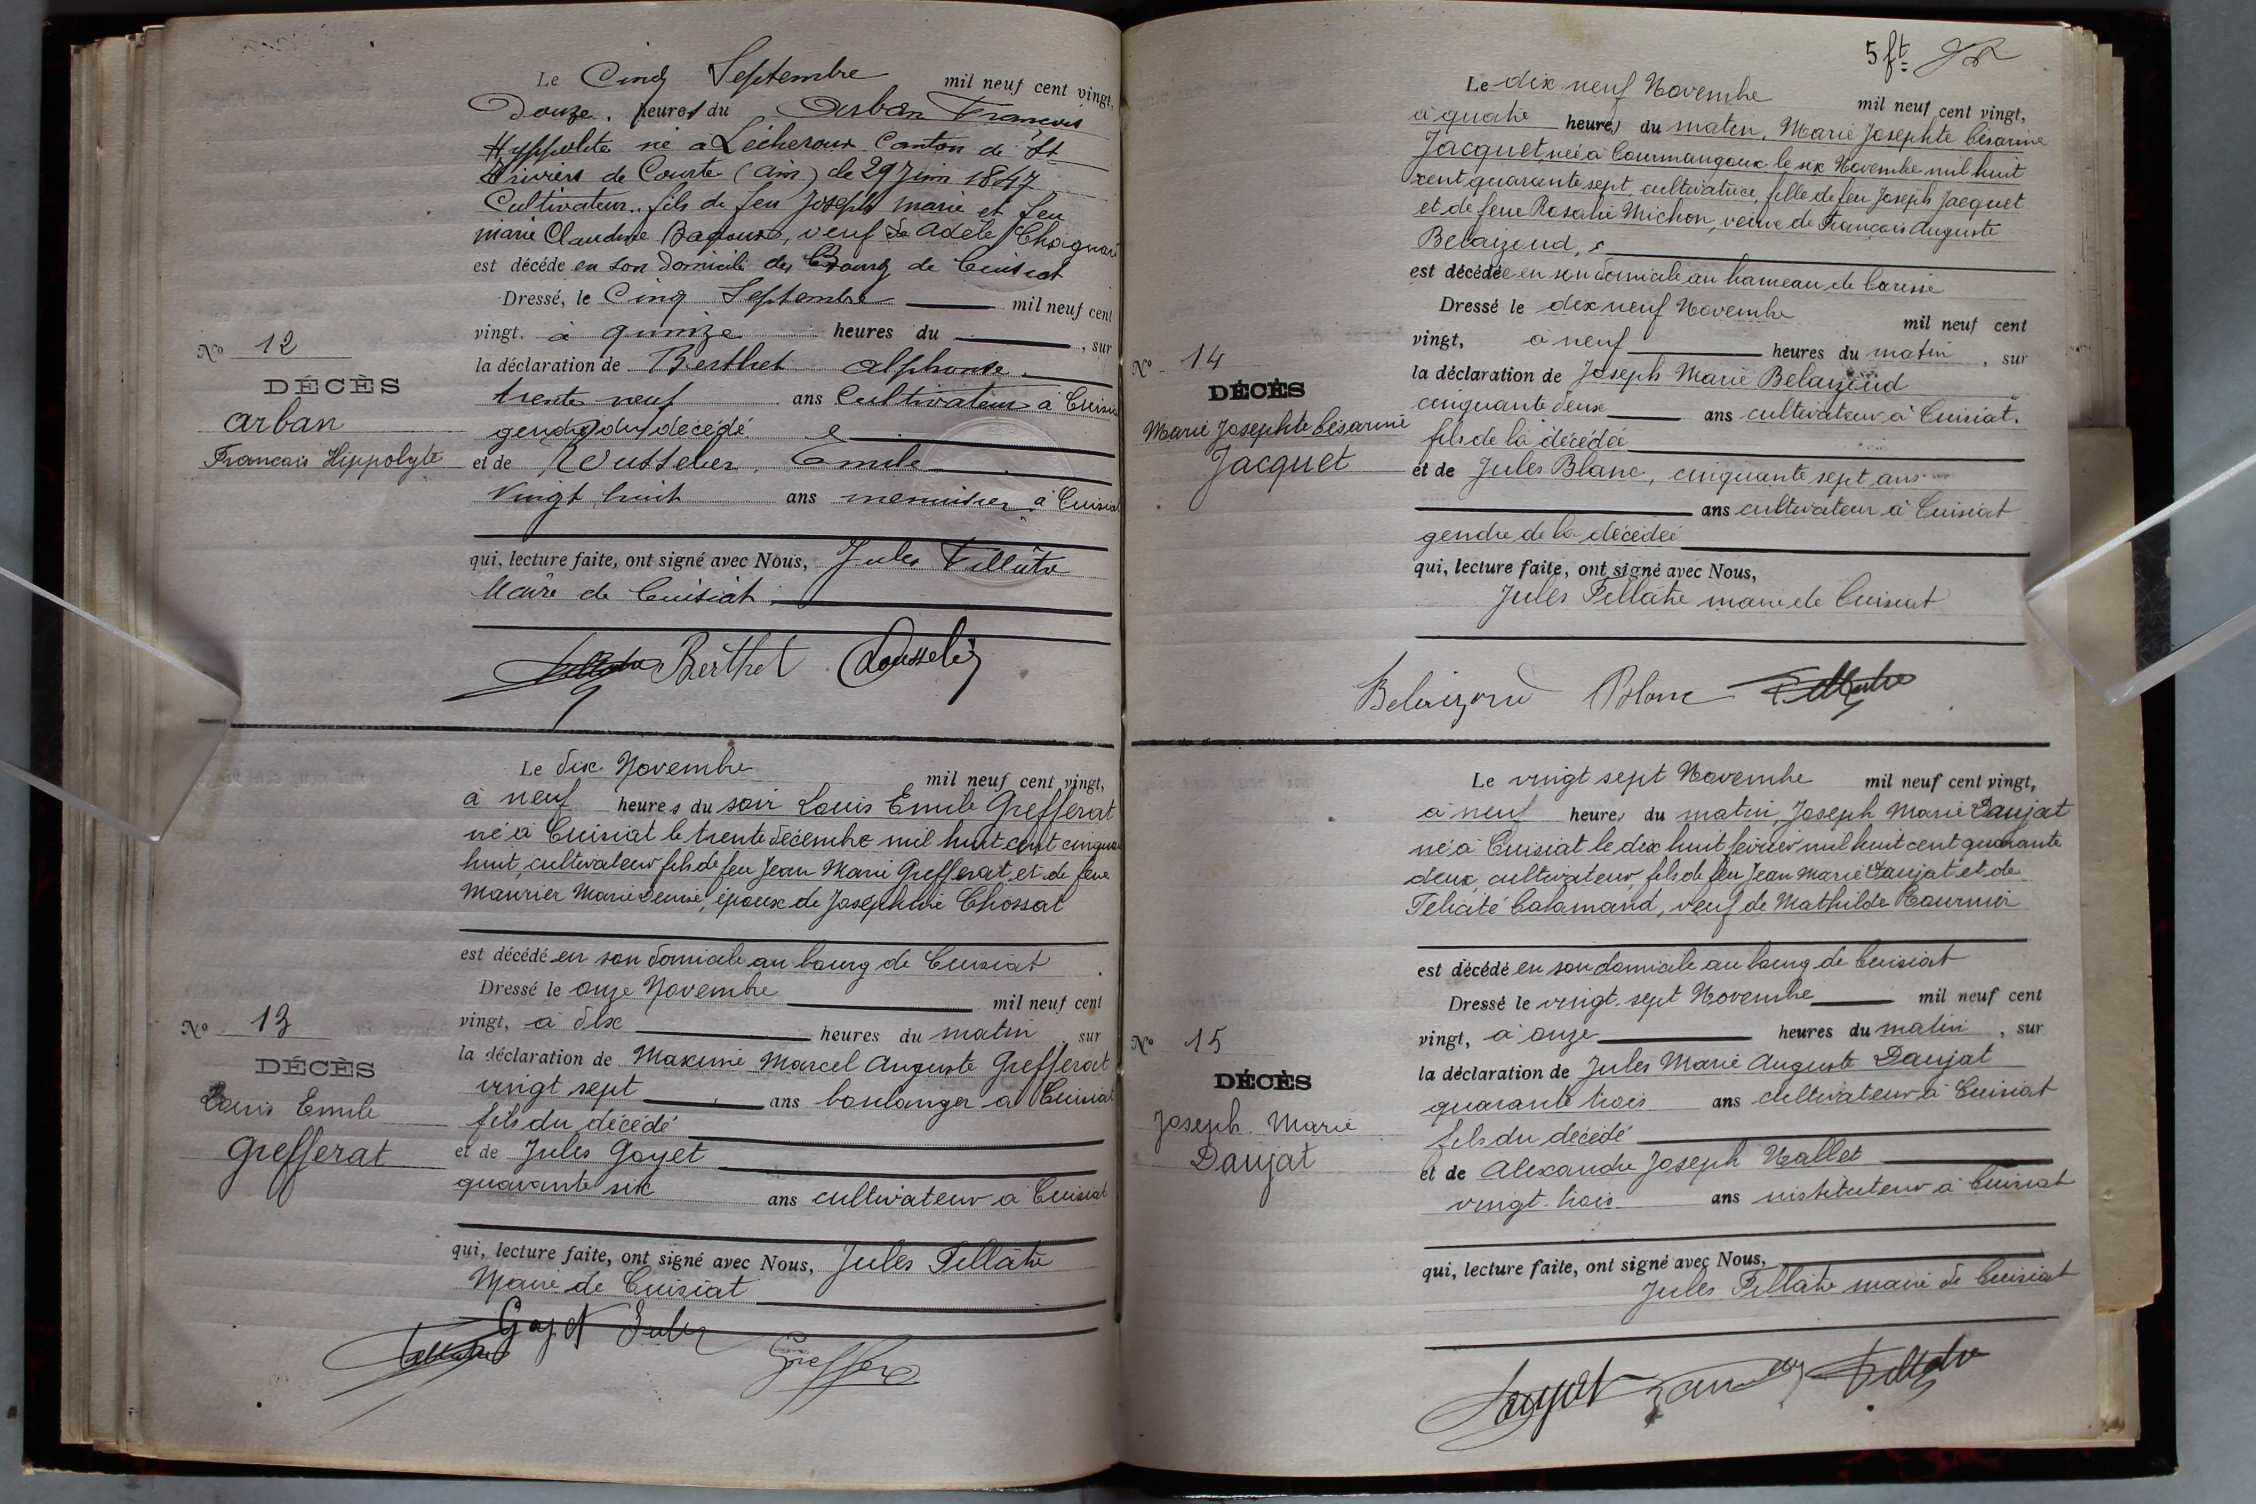 Le Cinq Septembre mil neuf cent vingt,
Douze. heures du Arban François
Hyppolite né à Lécheroux Canton de St
Triviers de Courte (Ain) le 29 Juin 1847
Cultivateur. fils de feu Joseph marie et feu
marie Claudine, veuf de Adèle
est décéde en son domicile du Bourg de Cuisiat
Dressé, le Cinq Septembre mil neuf cent
vingt. à quinze heures du , sur
la déclaration de Berthet alphonse.
trente neuf ans Cultivateur à
gendre du décédé
et de Emile
Vingt huit ans menuisier à
qui, lecture faite, ont signé avec Nous, Jules Fillâtre
Maire de Cuisiat
Berthet
No 12
DÉCÈS
Arban
Francais Hippolyte
Le dix Novembre mil neuf cent vingt,
à neuf heures du soir Louis Emile Grefferat
né à Cuisiat le trente décembre mil huit cent
huit, cultivateur fils de feu Jean Marie Grefferat et de feue
Maurier Marie Denise, époux de Josephine Chossat
est décédé en son domicile au bourg de Cuisiat
Dressé le onze Novembre mil neuf cent
vingt, à dix heures du matin sur
la déclaration de Maxime Marcel Auguste Grefferat
vingt sept ans boulanger à Cuisiat
fils du décédé
et de Jules Goyet
quarante six ans cultivateur à Cuisiat
qui, lecture faite, ont signé avec Nous, Jules Fillâtre
Maire de Cuisiat
No 13
DÉCÈS
Louis Emile
Grefferat
5 ft
Le dix neuf Novembre mil neuf cent vingt,
à quatre heures du matin, Marie Josephte Césarine
Jacquet née à Courmangoux le six Novembre mil huit
cent quarante sept, cultivatrice, fille de feu Joseph Jacquet
et de feue Rosalie Michon, veuve de François Auguste
Belaizoud,
est décédée en son domicile au hameau de
Dressé le dix neuf Novembre mil neuf cent
vingt, à neuf heures du matin , sur
la déclaration de Joseph Marie Belaizoud
cinquante deux ans cultivateur à Cuisiat.
fils de la décédée
et de Jules Blanc, cinquante sept ans
ans cultivateur à Cuisiat
gendre de la décédée
qui, lecture faite, ont signé avec Nous,
Jules Fillâtre maire de Cuisiat
Belaizoud Blanc
No 14
DÉCÈS
Marie Josephte Césarine
Jacquet
Le vingt sept Novembre mil neuf cent vingt,
à neuf heures du matin Joseph Marie Daujat
né à Cuisiat le dix huit février mil huit cent quarante
deux, cultivateur, fils de feu Jean Marie Daujat et de
Félicité Calamand, veuf de Mathilde Tournier
est décédé en son domicile au bourg de Cuisiat
Dressé le vingt sept Novembre mil neuf cent
vingt, à onze heures du matin , sur
la déclaration de Jules Marie Auguste Daujat
quarante trois ans cultivateur à Cuisiat
fils du décédé
et de Alexandre Joseph Nallet
vingt trois ans instituteur à Cuisiat
qui, lecture faite, ont signé avec Nous,
Jules Fillâtre maire de Cuisiat
No 15
DÉCÈS
Joseph Marie
Daujat